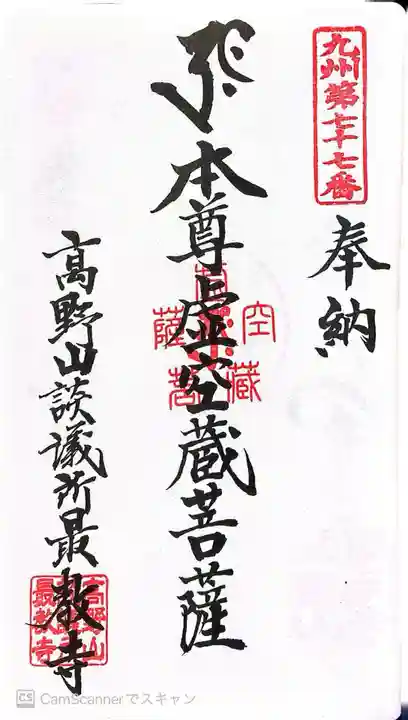 九州第七十七番
奉納
本尊虚空蔵菩薩
空蔵
菩薩
高野山談議所最教寺
高野山
最教寺
CS CamScannerでスキャン